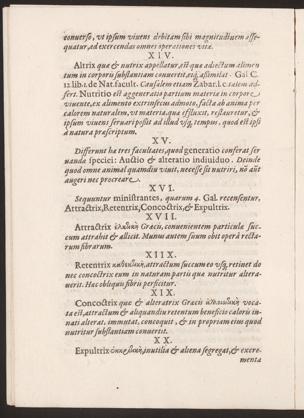 conuerso, vt ipsum viuens debitam sibi magnitudinem asse-
quatur, ad exercendas omnes operationes vitæ.
XIV.
Altrix quæ & nutrix appellatur, est quæ adiectum alimen
tum in corporis substantiam conuertit, eiq́; assimilat. Gal. C.
12. lib. 1. de Nat. facult. Causalem etiam Zabar. l. c. talem ad-
fert. Nutritio est aggeneratio partium materiæ in corpore
viuente, ex alimento extrinsecus admoto, facta ab anima per
calorem naturalem, vt materia, quæ effluxit, restauretur, &
ipsum viuens seruari possit ad illud vsq; tempus, quod est ipsi
à natura præscriptum.
XV.
Differunt hæ tres facultates, quod generatio conferat ser
uandæ speciei: Auctio & alteratio indiuiduo. Deinde
quod omne animal quamdiu viuit, necesse sit nutriri, nō aūt
augeri nec procreare.
XVI.
Sequuntur ministrantes, quarum 4. Gal. recensentur,
Attractrix, Retentrix, Concoctrix, & Expultrix.
XVII.
Attractrix ἑλκτικὴ Græcis, conuenientem particulæ suc-
cum attrahit & allicit. Munus autem suum obit opera recta-
rum fibrarum.
XIIX.
Retentrix καθεκτικὴ, attractum succum eo vsq; retinet do
nec concoctrix eum in naturam partis quæ nutritur altera-
uerit. Hæc obliquis fibris perficitur.
XIX.
Concoctrix quæ & alteratrix Græcis ἀλλοιωτικὴ voca-
ta est, attractum & aliquandiu retentum beneficio caloris in-
nati alterat, immutat, concoquit, & in propriam eius quod
nutritur substantiam conuertit.
XX.
Expultrix ἐκκριτικὴ, inutilia & aliena segregat, & excre-
menta